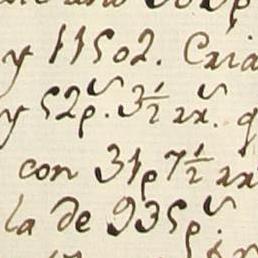 y 11502. Cria
y 52p.s 3½ xx.s q
con 31p 7½ xx
la de 935p.s